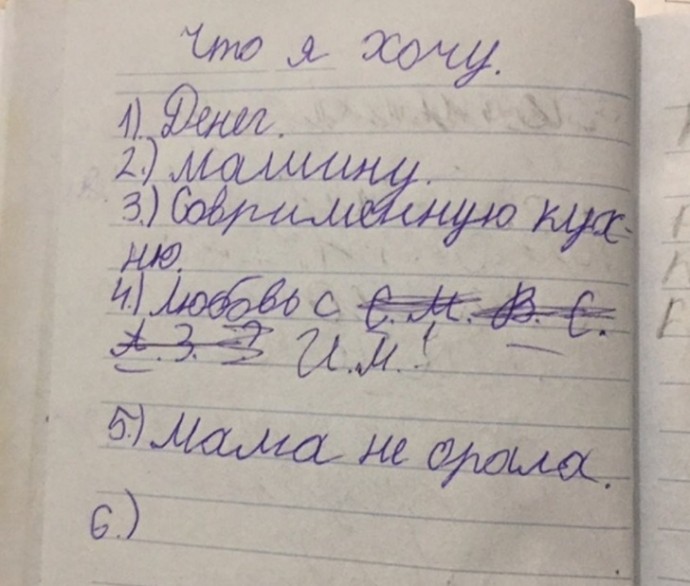 Что я хочу.
1). Денег.
2.) Машину.
3.) Современную кух-
ню.
4.) Любовь с С. М. В. С.
А. З. И.М.!
5.) Мама не орала.
6.)